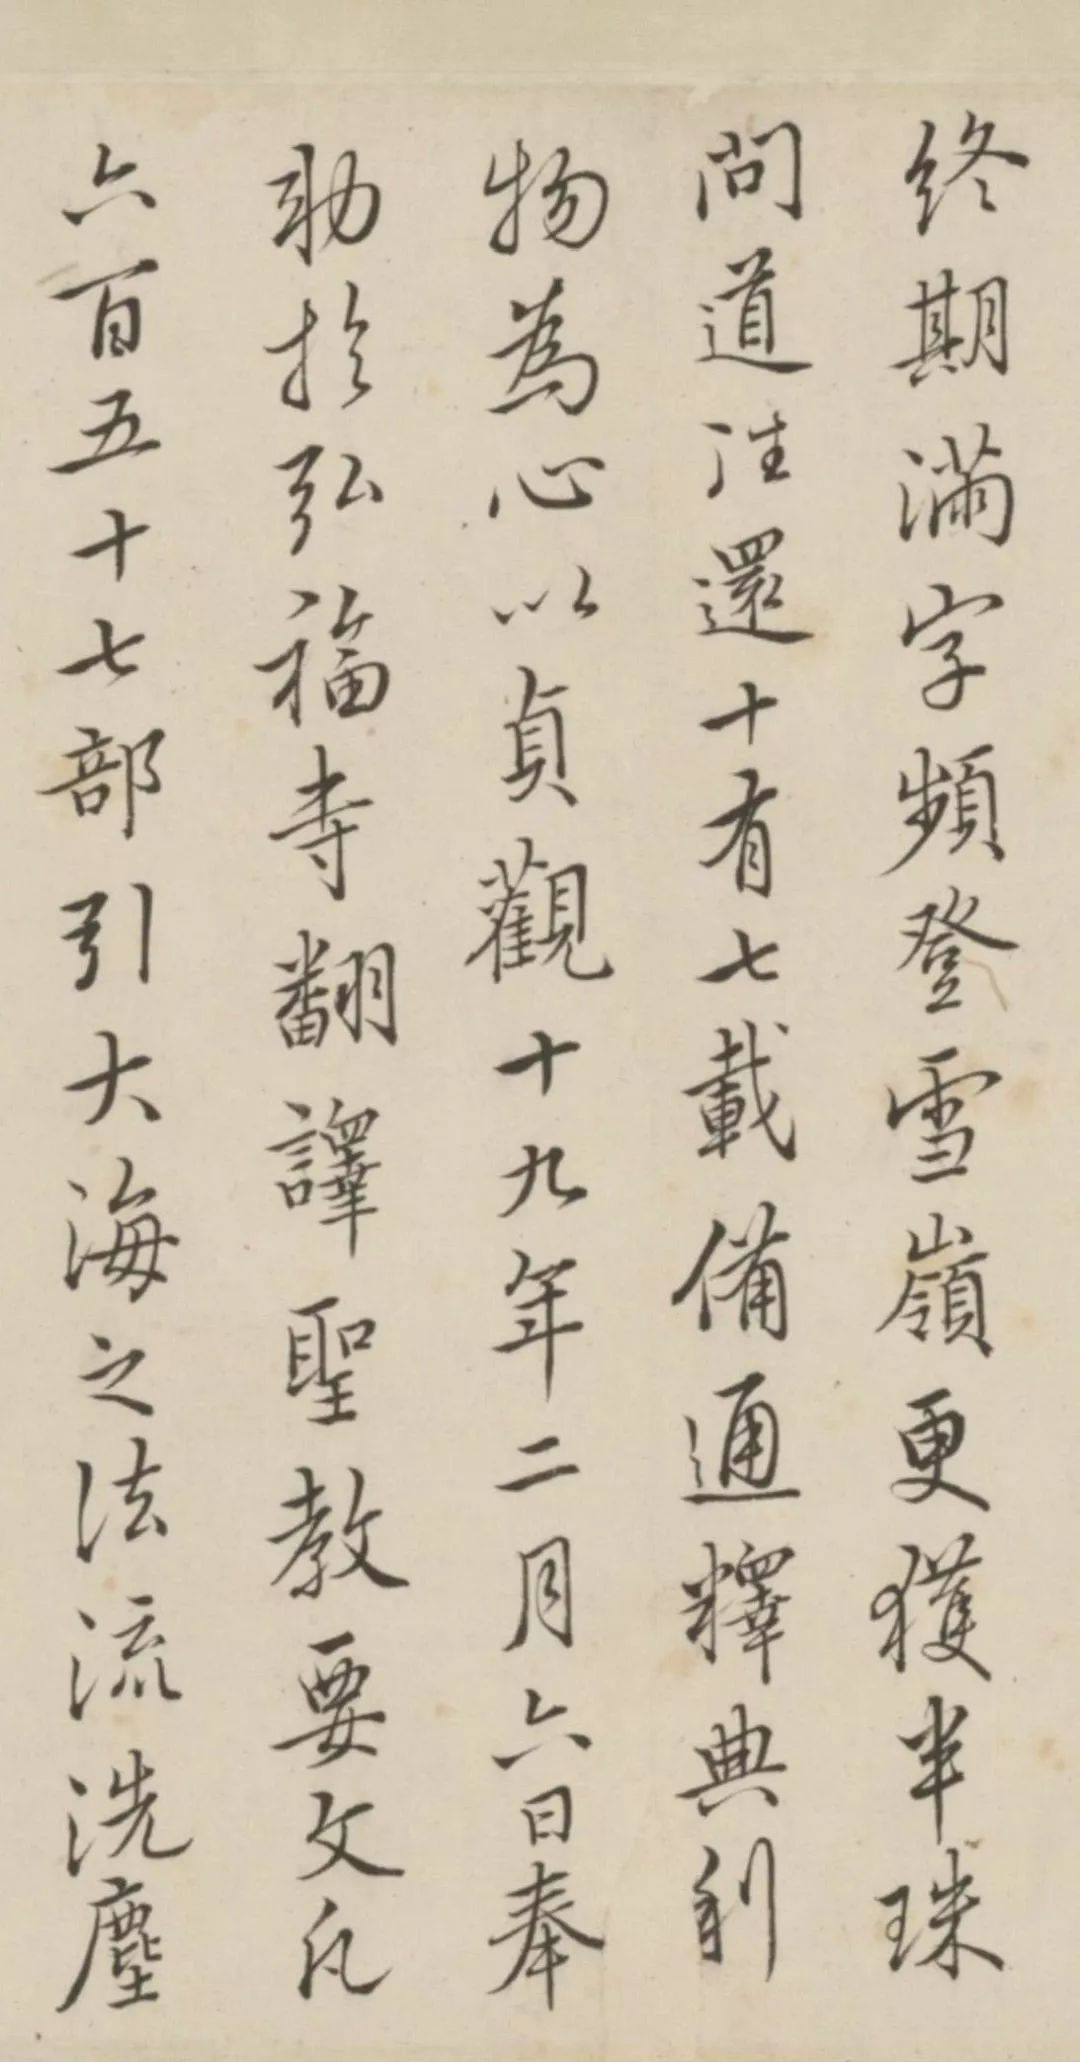 終期滿字頻登雪嶺更獲半珠
問道往還十有七載備通釋典利
物為心以貞觀十九年二月六日奉
勅於弘福寺翻譯聖教要文凡
六百五十七部引大海之法流洗塵